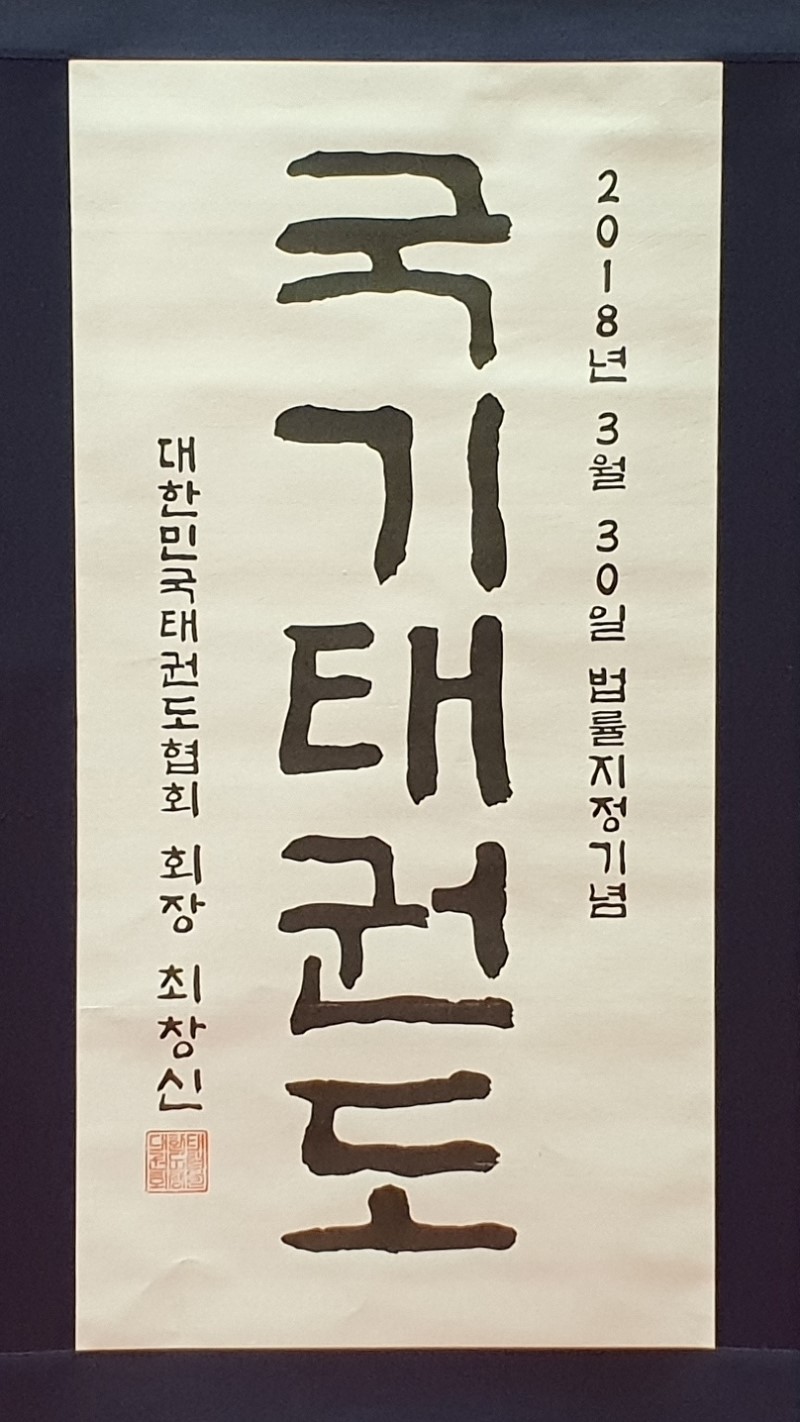 2018년 3월 30일 법률지정기념
국기태권도
대한민국태권도협회 회장 최창신